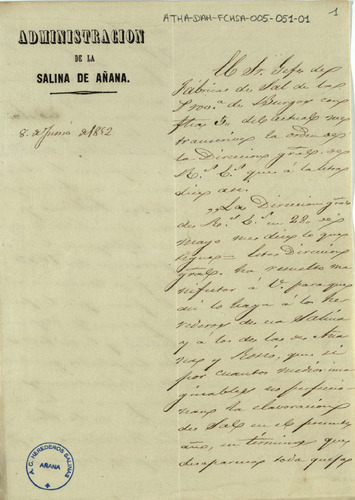 ATHA-DAH-FCHSA-005-051-01
1
ADMINISTRACION
DE LA
SALINA DE AÑANA.
8. de Junio de 1852
El Sr. Gefe de
Fábricas de Sal de las
Prov.s de Burgos con
fha 5 del actual me
transcribe la orden de
la Direccion gral. de
R.s E.s que á la letra
dice asi.
"La Direccion gral
de R.s E.s en 28 de
mayo me dice lo que
sigue = Esta Direccion
gral. ha resuelto ma
nifestar á V. para que
asi lo haga á los he
rederos de esa Salina
y á los de las de Aña
na y Rosio, que si
por cuantos medios ima
ginables no perfeccio
nan la elavoracion
de Sal en el presente
año, en términos que
desaparezca toda queja
A. C. HEREDEROS SALINAS
AÑANA